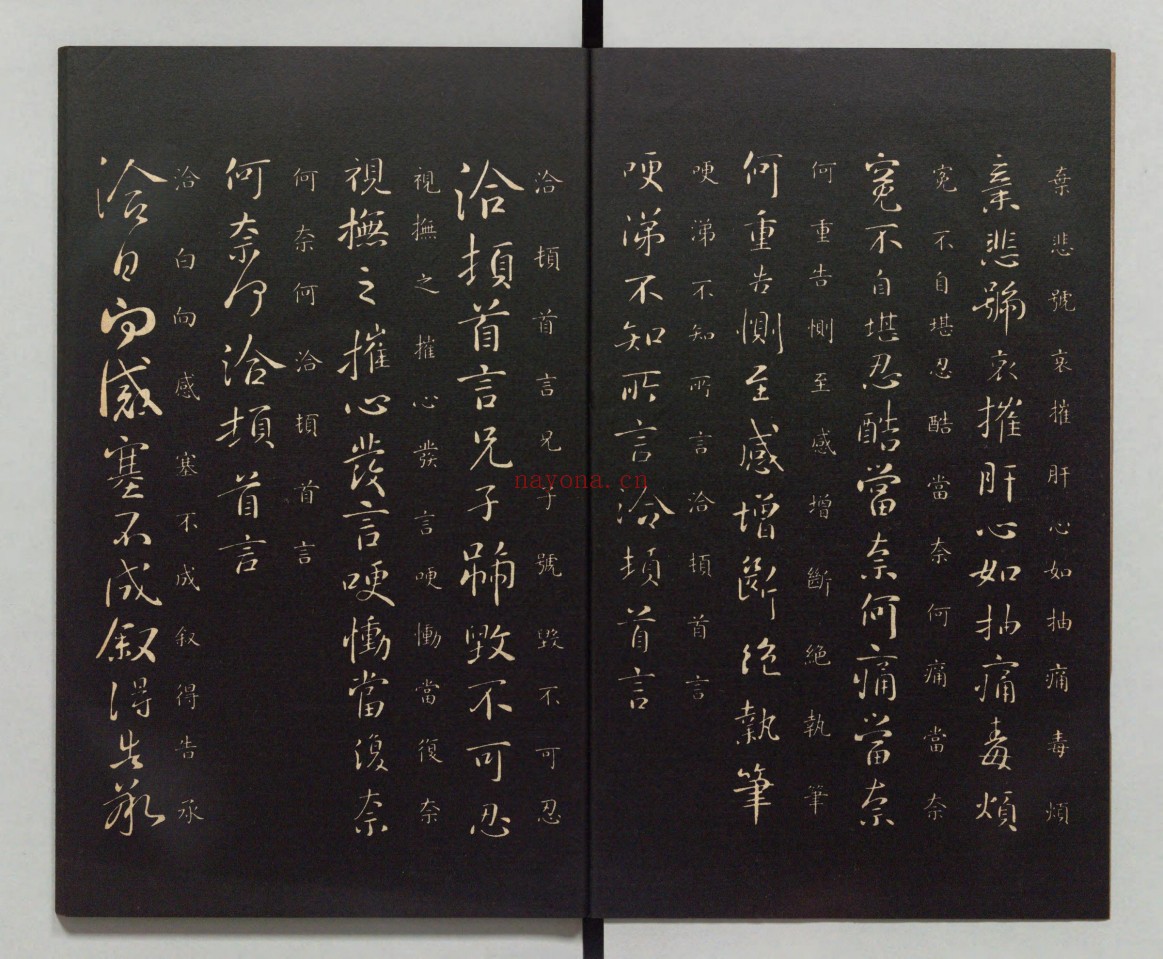 棄悲號哀摧肝心如抽痛毒煩
棄悲號哀摧肝心如抽痛毒煩
寃不自堪忍酷當奈何痛當奈
寃不自堪忍酷當奈何痛當奈
何重告惻至感增斷絕執筆
何重告惻至感增斷絕執筆
哽涕不知所言洽頓首言
哽涕不知所言洽頓首言
洽頓首言兄子號毀不可忍
洽頓首言兄子號毀不可忍
視撫之摧心發言哽慟當復奈
視撫之摧心發言哽慟當復奈
何奈何洽頓首言
何奈何洽頓首言
洽白向感塞不成叙得告承
洽白向感塞不成叙得告承
nayona.cn